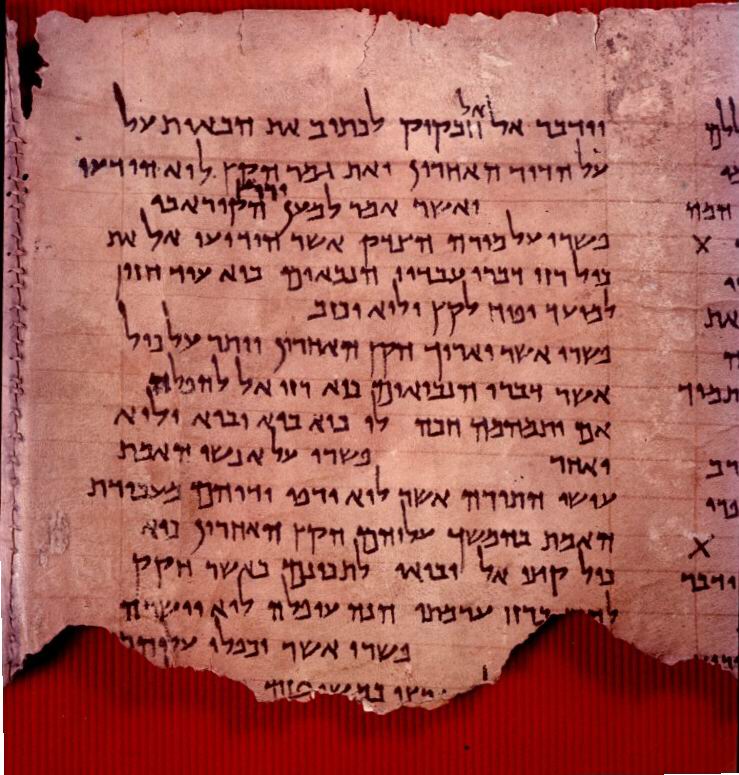 וידבר אל אל חבקוק לכתוב את הבאות על
על הדור האחרון ואת גמר הקץ לוא הודעו
ואשר אמר למען ירוץ הקורא בו
פשרו על מורה הצדק אשר הודיעו אל את
כול רזי דברי עבדיו הנבאים כיא עוד חזון
למועד יפיח לקץ ולוא יכזב
פשרו אשר יארוך הקץ האחרון ויתר על כול
אשר דברו הנביאים כיא רזי אל להפלה
אם יתמהמה חכה לו כיא בוא יבוא ולוא
יאחר פשרו על אנשי האמת
עושי התורה אשר לוא ירפו ידיהם מעבודת
האמת בהמשך עליהם הקץ האחרון כיא
כול קיצי אל יבואו לתכונם כאשר חקק
ברזי ערמתו הנה עופלה לוא יושרה
פשרו אשר יכפלו עליהם